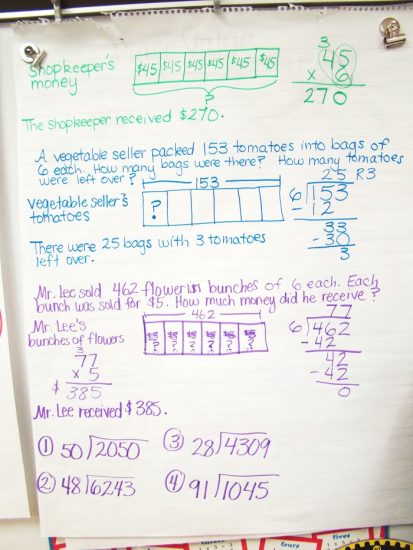 Shopkeeper's
money
$45 $45 $45 $45 $45 $45
?
3
45
x 6
270
The shopkeeper received $270.
A vegetable seller packed 153 tomatoes into bags of
6 each. How many bags were there? How many tomatoes
were left over?
153
Vegetable seller's
tomatoes
?
25 R3
6 153
-12
33
-30
3
There were 25 bags with 3 tomatoes
left over.
Mr. Lee sold 462 flowers in bunches of 6 each. Each
bunch was sold for $5. How much money did he receive?
462
Mr. Lee's
bunches of flowers
$5 $5 $5 $5 $5 $5
? ? ? ? ? ?
77
6 462
-42
42
-42
0
3
77
x 5
$ 385
Mr. Lee received $385.
1 50 2050
3 28 4309
2 48 6243
4 91 1045
fours
fives